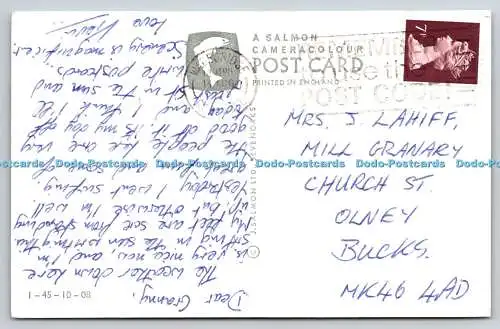 Dear Granny,
The weather down here
is very nice now, and I'm
sitting in the sun writing this
My feet are sore from standing
up, but otherwise I'm well.
Yesterday I went surfing,
The people here are very
good
today and I think I'll
sit in the sun and
write postcards
Scenery is magnificent
Love
A SALMON
CAMERACOLOUR
POST CARD
PRINTED IN ENGLAND
POST CODE
7
MRS J. LAHIFF,
MILL GRANARY
CHURCH ST.
OLNEY
BUCKS.
MK46 4AD
1-45-10-08
© J. SALMON LTD., SEVENOAKS
Dodo-Postcards Dodo-Postcards Dodo-Postcards Dodo-Postcards Dodo-Postcards